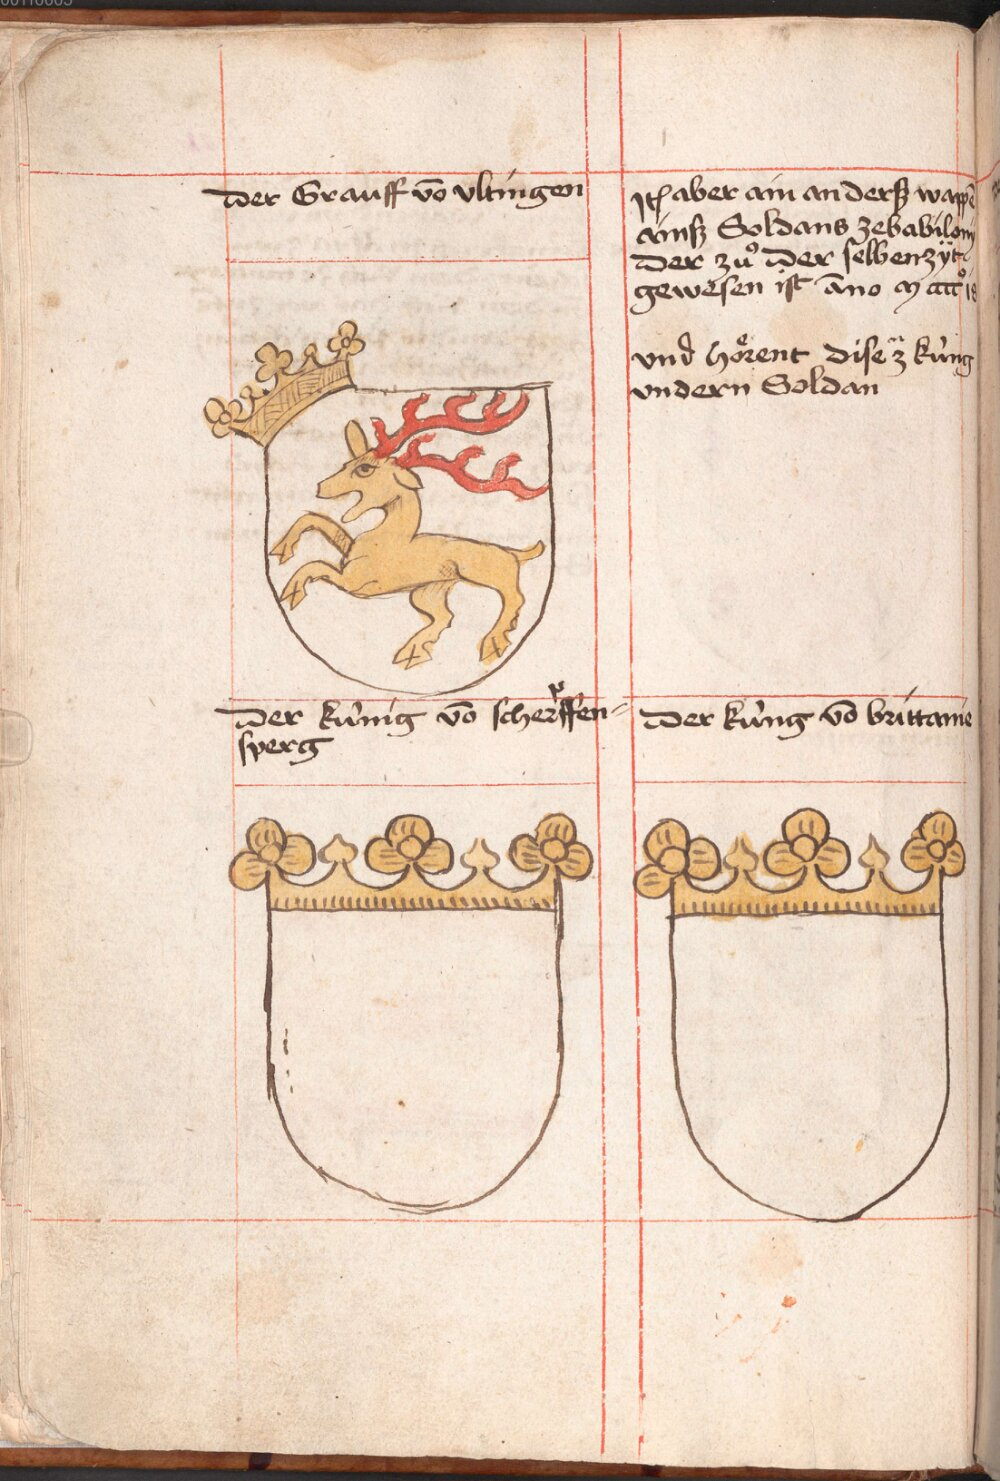 der Grauff vō vltingen
Itē aber ain anderß wappē
ainß Soldans zebabiloni
der zuͦ der selbenzÿt
gewesen ist āno
vnd hoͤrent dise kúng
vndern Soldan
der kúnig vō scherpffen-
sperg
der kúng vō brittanie